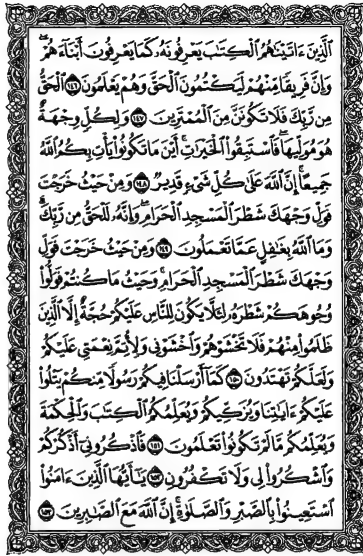 ٱلَّذِينَ ءَاتَيْنَٰهُمُ ٱلْكِتَٰبَ يَعْرِفُونَهُۥ كَمَا يَعْرِفُونَ أَبْنَآءَهُمْ ۖ
وَإِنَّ فَرِيقًا مِّنْهُمْ لَيَكْتُمُونَ ٱلْحَقَّ وَهُمْ يَعْلَمُونَ ١٤٦ ٱلْحَقُّ
مِن رَّبِّكَ فَلَا تَكُونَنَّ مِنَ ٱلْمُمْتَرِينَ ١٤٧ وَلِكُلٍّ وِجْهَةٌ
هُوَ مُوَلِّيهَا ۖ فَٱسْتَبِقُوا۟ ٱلْخَيْرَٰتِ ۚ أَيْنَ مَا تَكُونُوا۟ يَأْتِ بِكُمُ ٱللَّهُ
جَمِيعًا ۚ إِنَّ ٱللَّهَ عَلَىٰ كُلِّ شَىْءٍ قَدِيرٌ ١٤٨ وَمِنْ حَيْثُ خَرَجْتَ
فَوَلِّ وَجْهَكَ شَطْرَ ٱلْمَسْجِدِ ٱلْحَرَامِ ۖ وَإِنَّهُۥ لَلْحَقُّ مِن رَّبِّكَ ۗ
وَمَا ٱللَّهُ بِغَٰفِلٍ عَمَّا تَعْمَلُونَ ١٤٩ وَمِنْ حَيْثُ خَرَجْتَ فَوَلِّ
وَجْهَكَ شَطْرَ ٱلْمَسْجِدِ ٱلْحَرَامِ ۚ وَحَيْثُ مَا كُنتُمْ فَوَلُّوا۟
وُجُوهَكُمْ شَطْرَهُۥ لِئَلَّا يَكُونَ لِلنَّاسِ عَلَيْكُمْ حُجَّةٌ إِلَّا ٱلَّذِينَ
ظَلَمُوا۟ مِنْهُمْ فَلَا تَخْشَوْهُمْ وَٱخْشَوْنِى وَلِأُتِمَّ نِعْمَتِى عَلَيْكُمْ
وَلَعَلَّكُمْ تَهْتَدُونَ ١٥٠ كَمَآ أَرْسَلْنَا فِيكُمْ رَسُولًا مِّنكُمْ يَتْلُوا۟
عَلَيْكُمْ ءَايَٰتِنَا وَيُزَكِّيكُمْ وَيُعَلِّمُكُمُ ٱلْكِتَٰبَ وَٱلْحِكْمَةَ
وَيُعَلِّمُكُم مَّا لَمْ تَكُونُوا۟ تَعْلَمُونَ ١٥١ فَٱذْكُرُونِىٓ أَذْكُرْكُمْ
وَٱشْكُرُوا۟ لِى وَلَا تَكْفُرُونِ ١٥٢ يَٰٓأَيُّهَا ٱلَّذِينَ ءَامَنُوا۟
ٱسْتَعِينُوا۟ بِٱلصَّبْرِ وَٱلصَّلَوٰةِ ۚ إِنَّ ٱللَّهَ مَعَ ٱلصَّٰبِرِينَ ١٥٣